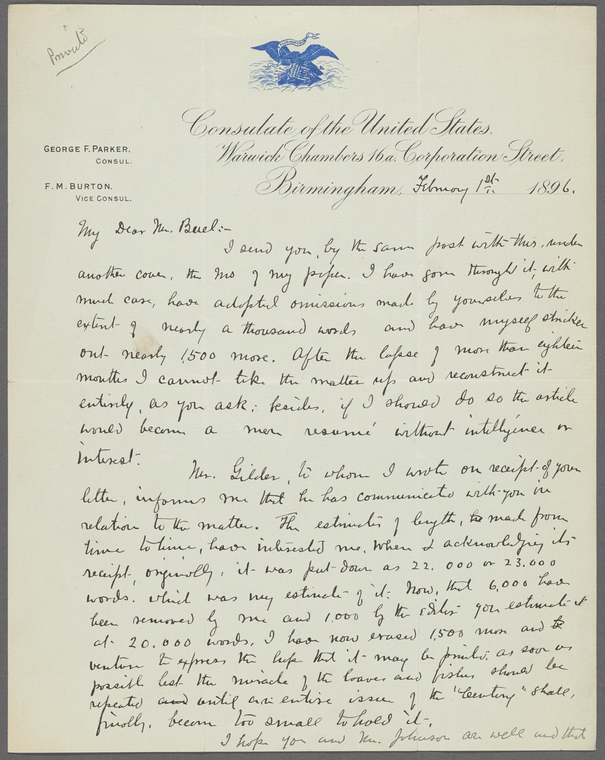 Private
Consulate of the United States,
Warwick Chambers 16a. Corporation Street,
Birmingham, February 1st 1896.
GEORGE F. PARKER,
CONSUL.
F. M. BURTON,
VICE CONSUL.
My Dear Mr. Buel:-
I send you, by the same post with this, under
another cover, the MS of my paper. I have gone through it, with
much care, have adopted omissions made by yourselves to the
extent of nearly a thousand words and have myself stricken
out nearly 1,500 more. After the lapse of more than eighteen
months I cannot take the matter up and reconstruct it
entirely, as you ask; besides, if I should do so the article
would become a mere resumé without intelligence or
interest.
Mr. Gilder, to whom I wrote on receipt of your
letter, informs me that he has communicated with you in
relation to the matter. The estimates of length, made from
time to time, have interested me. When acknowledging its
receipt, originally, it was put down as 22,000 or 23,000
words, which was my estimate of it. Now, that 6,000 have
been removed by me and 1,000 by the Editor your estimate is
at 20.000 words. I have now erased 1,500 more and
venture to express the hope that it may be printed, as soon as
possible lest the miracle of the loaves and fishes should be
repeated and until an entire issue of the "Century" shall,
finally, become too small to hold it.
I hope you and Mr. Johnson are well and that